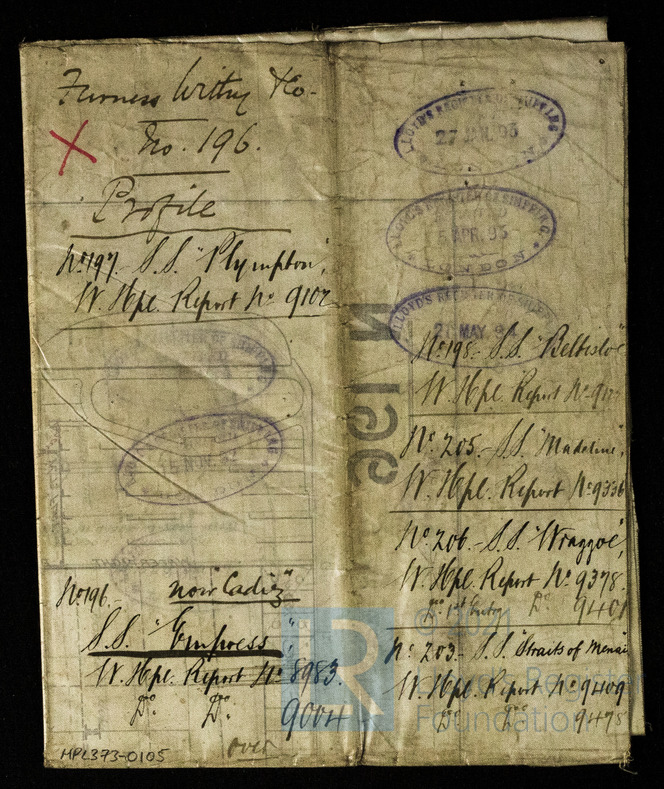 Furness Withy & Co-
No. 196.
Profile
No 197- S.S. "Plympton",
W. Hpl. Report No 9102
No 196- now "Cadiz"
S.S. "Empress",
W. Hpl. Report No 8983.
Do. Do. 9004
over
HPL373-0105
LLOYD'S REGISTER OF SHIPPING
27 JAN. 93
LLOYD'S REGISTER OF SHIPPING
5 APR. 93
LONDON
LLOYD'S REGISTER OF SHIPPING
MAY
No 198- S.S. "Belbisloe"
W. Hpl. Report No
No 205- S.S. "Madeline",
W. Hpl. Report No 9336
No 206- S.S. "Wraggoe",
W. Hpl. Report No 9378.
Do. 1st Entry Do. 9401
No 203- S.S. "Straits of Menai
W. Hpl. Report No 9409
Do. Do. 9478
No 196
REGISTER OF SHIPPING
LLOYD'S REGISTER OF SHIPPING
15 NOV. 92
LR
© 2021
Lloyd's Register
Foundation